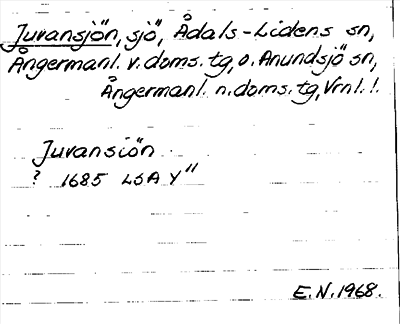 Juvansjön, sjö, Ådals-Lidens sn,
Ångermanl. v. doms. tg, o. Anundsjö sn,
Ångermanl. n. doms. tg, Vrnl.!
Juvansiön
? 1685 LSA Y"
E.N. 1968.